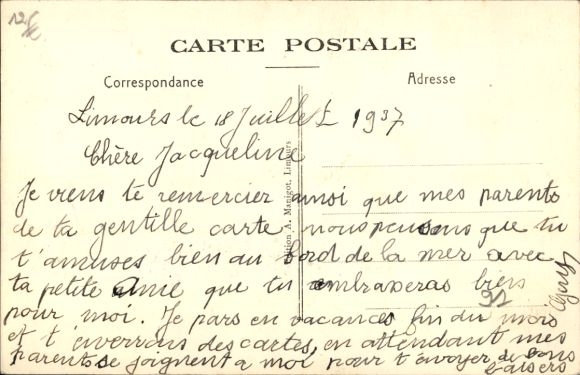 CARTE POSTALE
Correspondance
Adresse
Limours le 18 Juillet 1937
Chère Jacqueline
Je viens te remercier ainsi que mes parents
de ta gentille carte nous pensons que tu
t'amuses bien au bord de la mer avec
ta petite Amie que tu embrasseras bien
pour moi. Je pars en vacances fin du mois
et t'enverrons des cartes, en attendant mes
parents se joignent a moi pour t'envoyer de bons
baisers
Edition A. Manigot, Limours